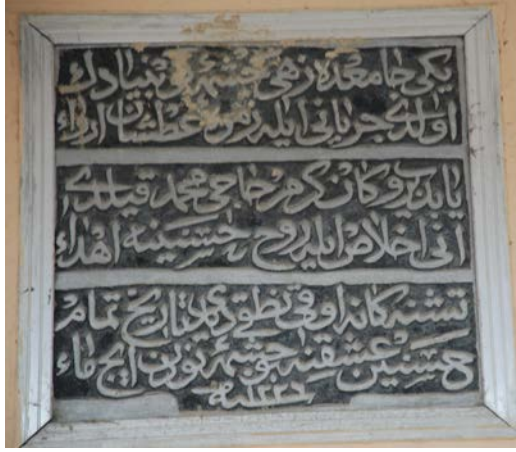 یکی جامعده زهی چشمهٔ بنیادك
اولدی جریانی ایله زمرهٔ عطشان ارواء
یابدیروب کان کرم حاجی محمد قیلدی
انی اخلاص ایله روح حسنینه اهداء
تشنه کانه اوقی نطقی دیدی تاریخ تمام
حسنین عشقنه چشمهٔ نودن ایچ ماء
سنه